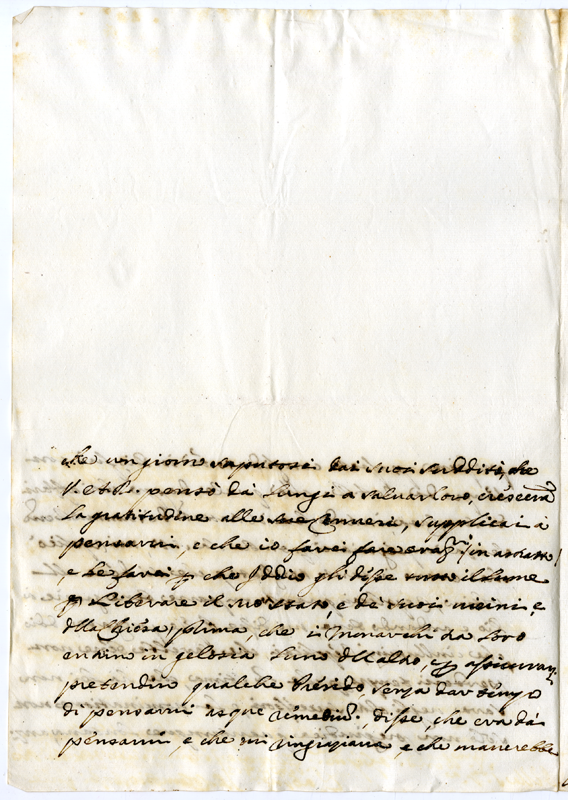 che un giorno saputosi dai suoi sudditi, che
V. A. R. pensò da lungi a salvarlove, crescerà
la gratitudine alle sue ceneri, supplicai a
pensarvi, e che io farei fare oraz.ni in astratto
e le farei p che Iddio gli disse tutto il lume
p liberare il suo stato, e de suoi vicini, e
della Chiesa, prima, che i Monarchi tra loro
entrino in gelosia l'uno dell'altro, e p assicurarsi
prendino qualche Presidio, senza dar tempo
di pensarvi neque remedium. disse, che era da
pensarvi, e che mi ringraziava, e che manerebbe